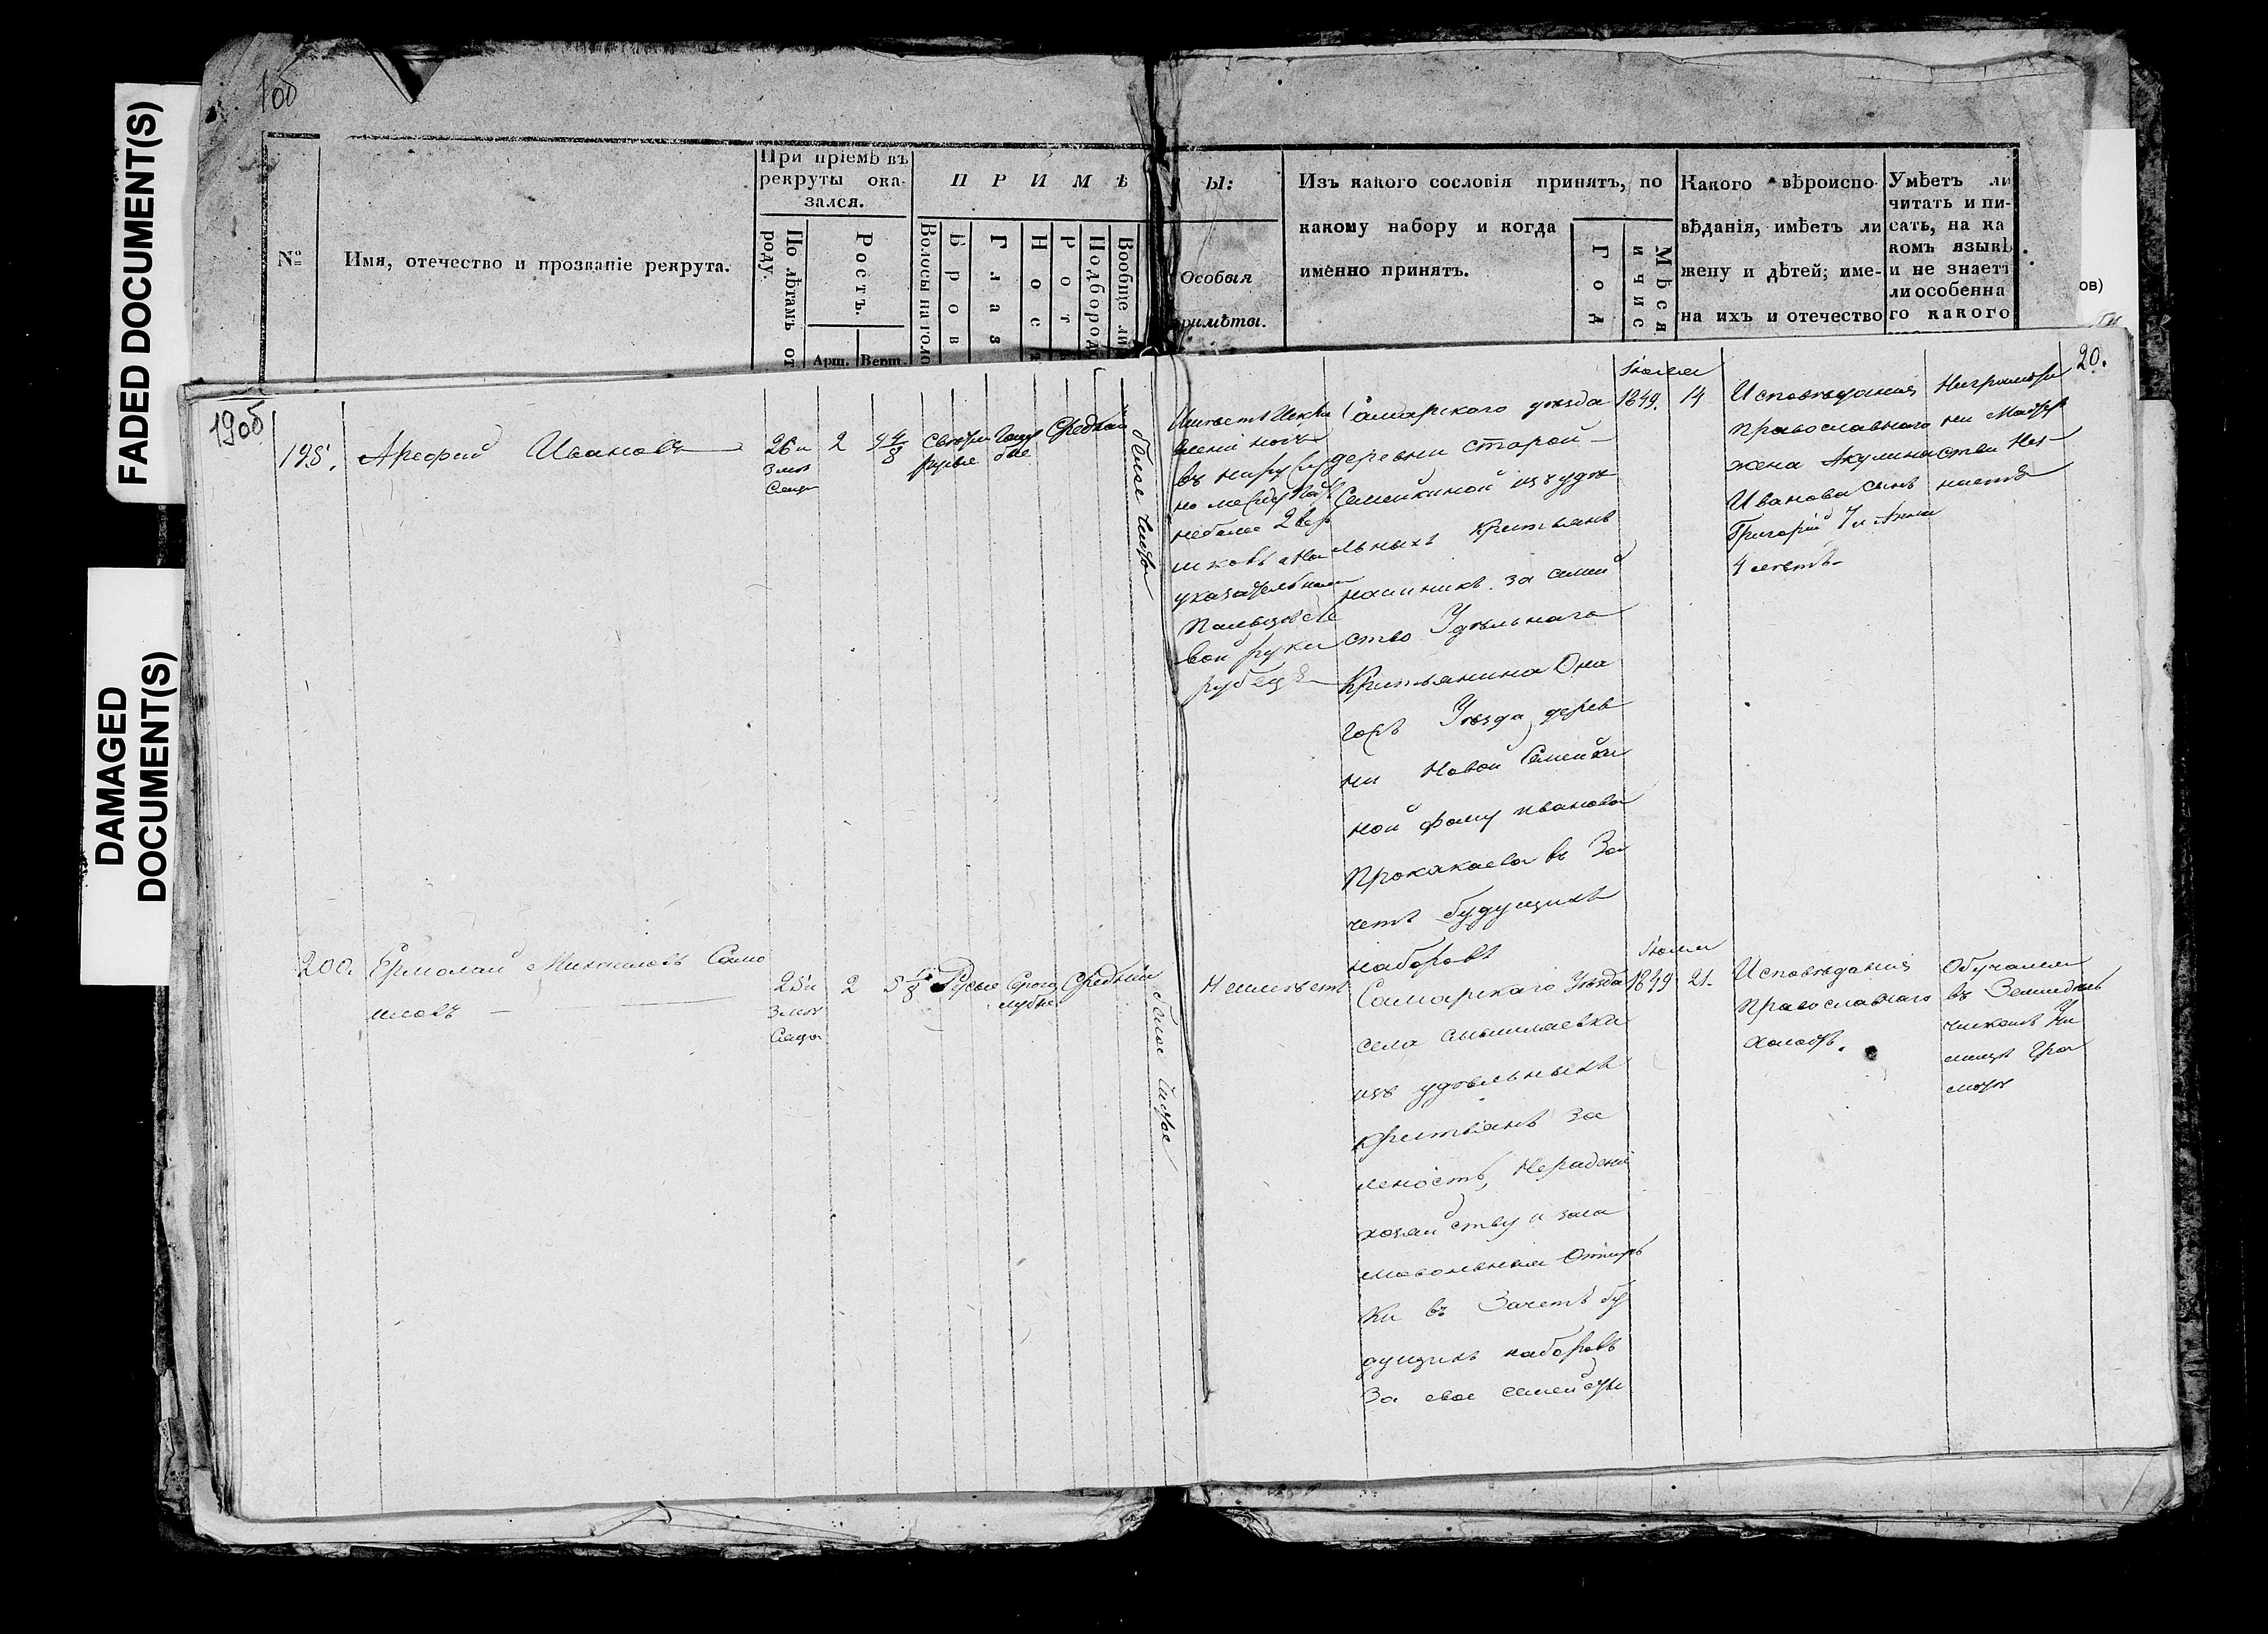 FADED DOCUMENT(S)
DAMAGED
DOCUMENT(S)
10б
№
Имя, отечество и прозваніе рекрута.
При пріемѣ въ
рекруты ока-
зался.
По лѣтамъ от
роду.
Ростъ.
Арш. Верш.
ПРИМѢ
Волосы на голо
Бров
Глаз
Нос
Рот
Подбород
Вообще ли
Ы:
Особыя
римѣты.
Изъ какого сословія принятъ, по
какому набору и когда
именно принятъ.
Год
Мѣся
и чис
Какого вѣроиспо-
вѣданія, имѣетъ ли
жену и дѣтей; име-
на ихъ и отечество
Умѣетъ ли
читать и пи-
сать, на ка
комъ языкѣ
и не знаетъ
ли особенна
го какого
ов)
19об
20.
195.
Арефий Ивановъ
26 и
2
4/8
Свѣтло
русые
Голу
бые
Средний
белое чистое
въ
но
неболее 2 вер
шковъ на
указательномъ
пальцѣ ле
вой руки
рубецъ
Самарского уезда
деревни старой
Семейкиной изъ удѣ
льныхъ крестьянъ
наемникъ за семей
ство Удѣльнаго
Крестьянина Она
горѣ Уезда дерев
ни Новой Семейки
ной Фому Иванова
въ За
четъ будущихъ
наборовъ
1849. 14
Исповѣдания
православнаго
жена Акулина
Иванова сынъ
Григорий 7 и Анна
4 летъ
ни Мастер
ства Не
200. Ермолай Михайловъ Само
йловъ
25 и
2
5 1/8
Русые
Серого
лубые
Средний
белое чистое
Неимеетъ
Самарскаго Уезда
села Смышляевки
изъ удѣльныхъ
крестьянъ за
леность, нерадение
хозяйству и само
вольныя Отлуч
ки въ Зачетъ бу
дущихъ наборовъ
За свое семейство
1849 21.
Исповѣдания
Православнаго
холостъ.
Обучался
въ Земледѣль
ческомъ Учи
лищѣ Гра
мотѣ